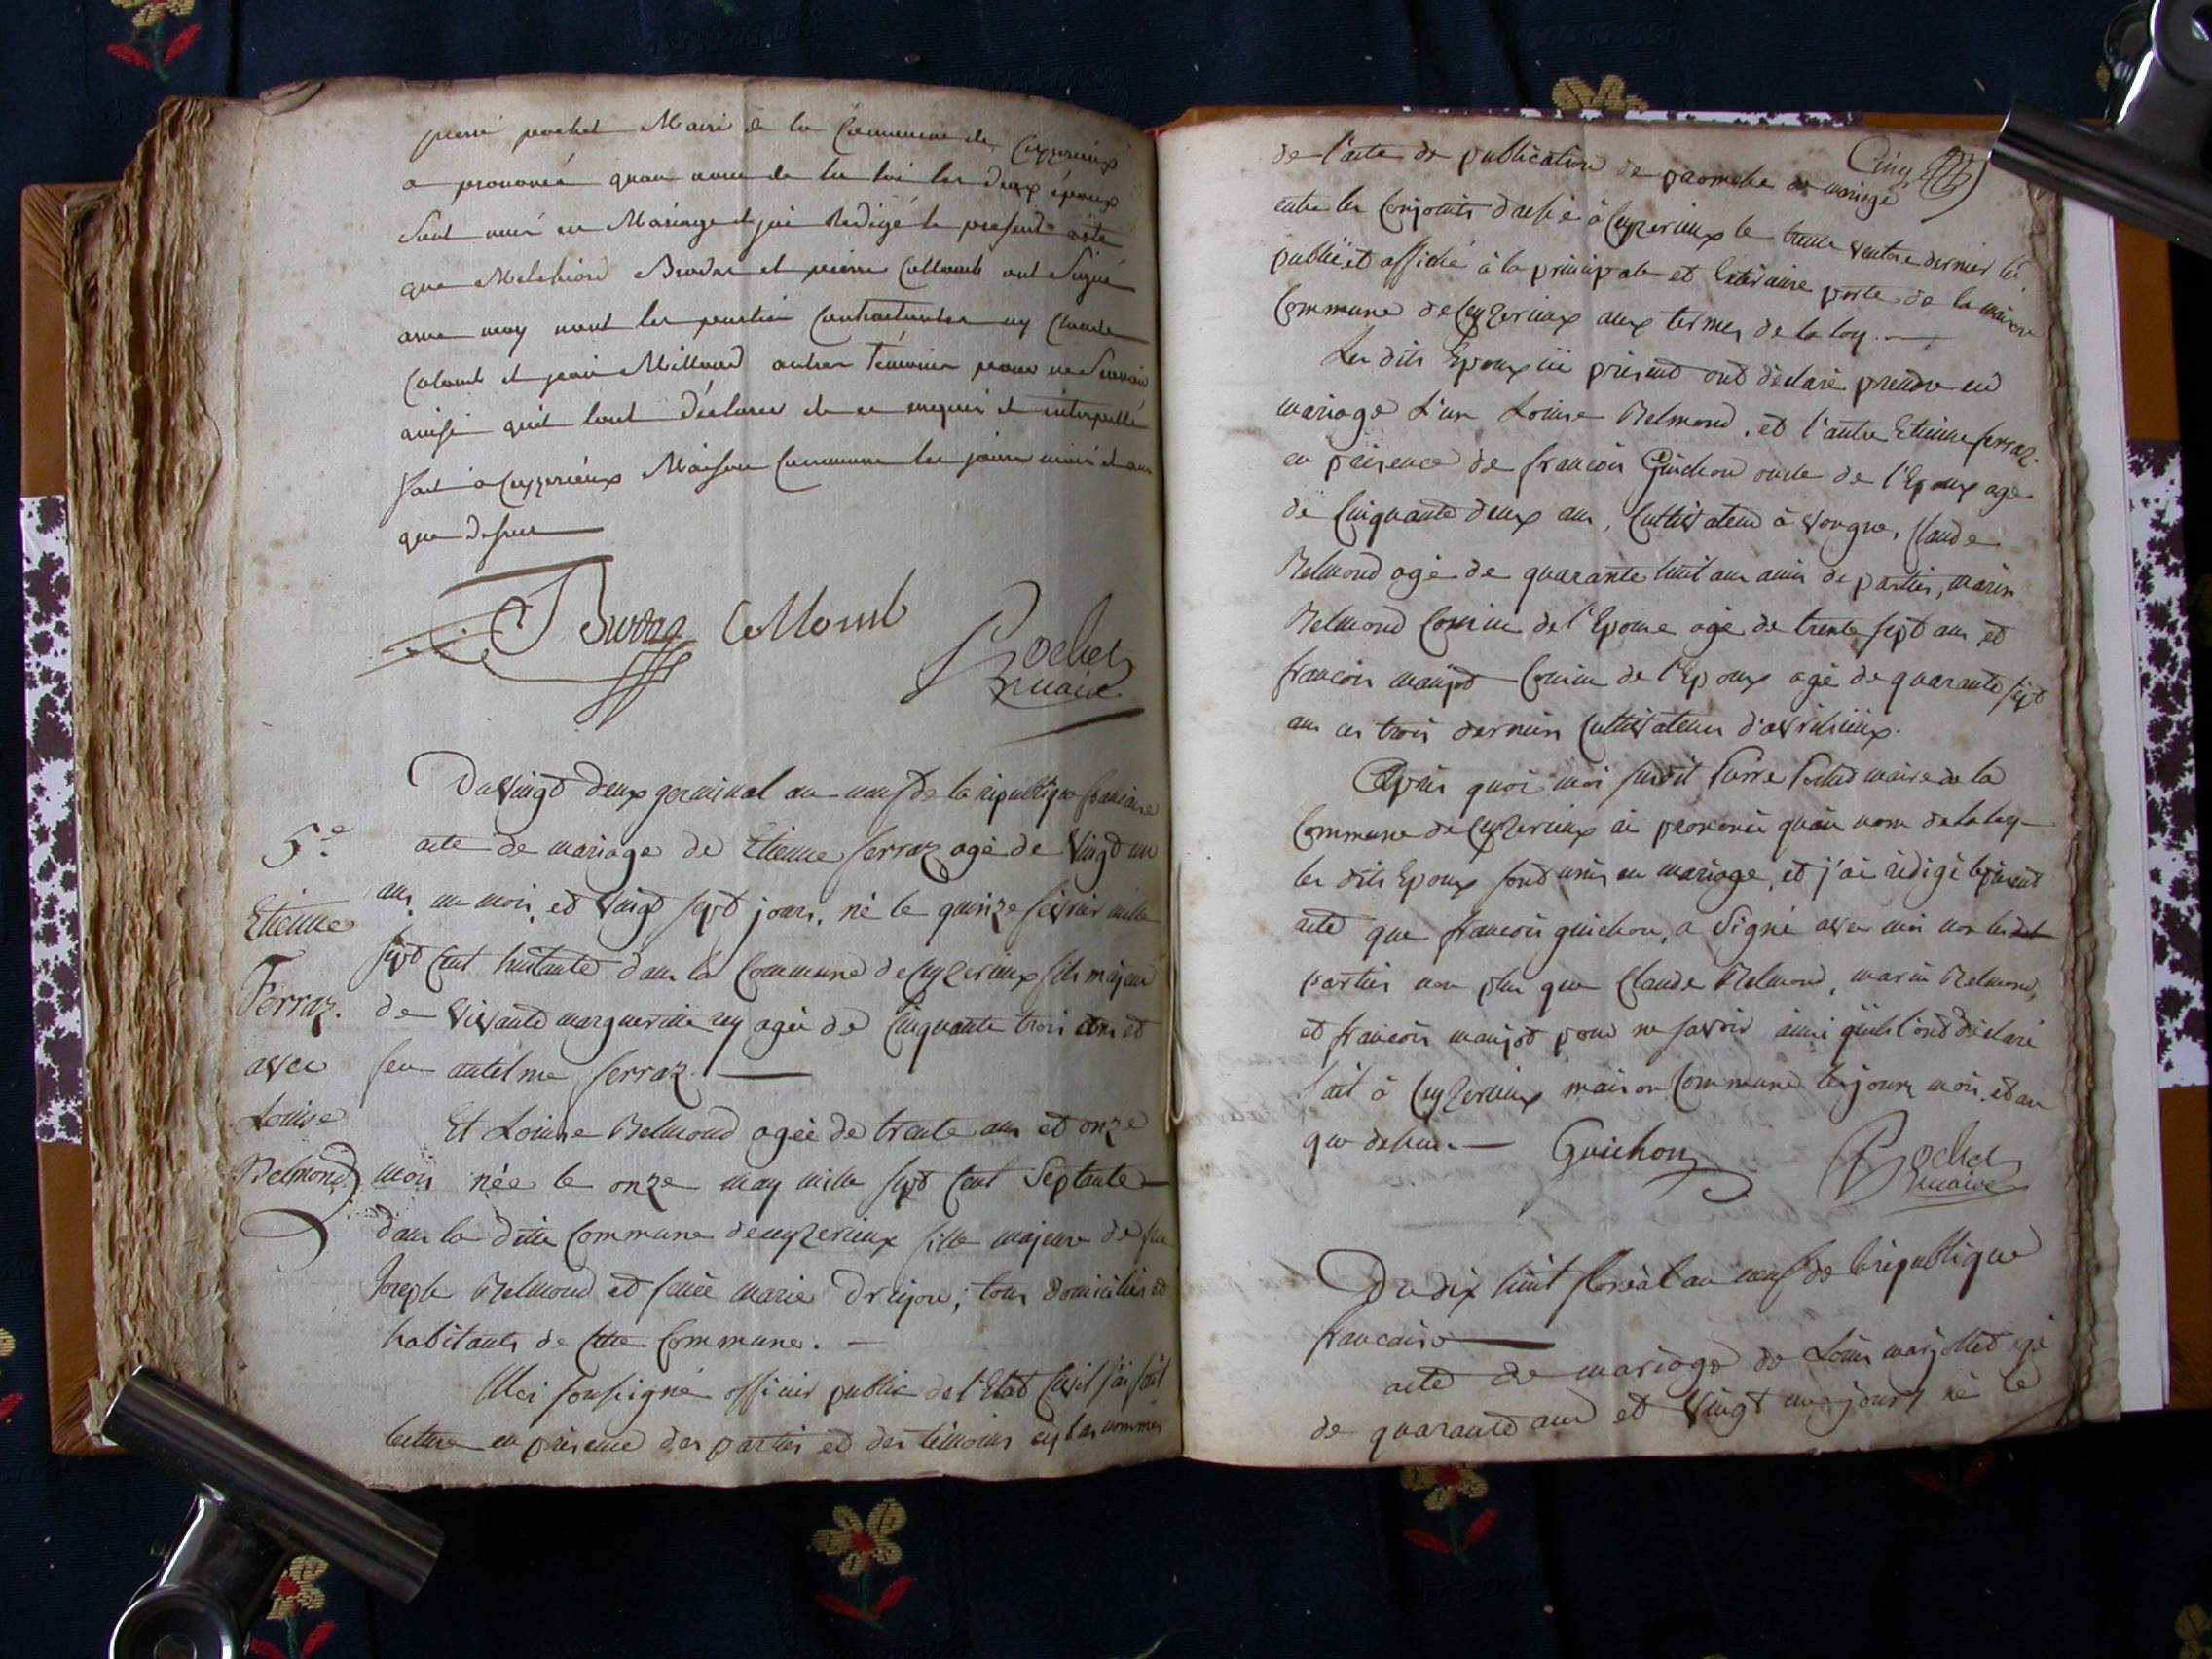 pierre pochet Maire de la Commune de Ceyzerieux
a prononcé quau nom de la loi les deux époux
sont unis en Mariage et jai Redigé le present acte
que Melchiord Burdar et pierre Collomb ont Signé
avec moy nont les parties Contractantes ny Claude
Colomb et jean Millaud autres Témoins pour ne Savoir
ainsi quil lont déclarer de ce enquis et interpellé
fait a Ceyzerieux Maison Commune les jours mois et an
que dessus
Burdar Collomb
Pochet
maire
Du vingt deux germinal an neuf de la république francaise
5.e
acte de mariage de Etienne ferraz agé de vingt un
ans, un mois, et vingt sept jours, né le quinze fevrier mille
Etienne
sept cent huitante dans la Commune de Ceyzerieux fils majeur
Ferraz.
de vivante marguerite rey agée de Cinquante trois ans et
avec
feu antelme ferraz.
Louise
Et Louise Belmond agée de trente ans et onze
Belmond
mois née le onze may mille sept cent Septante
dans la ditte Commune de ceyzerieux fille majeure de feu
Joseph Belmond et feüe marie Drujon; tous Domiciliés et
habitants de cette Commune.
Moi soussigné officier public de l'Etat Civil j'ai fait
lecture en présence des parties et des témoins cy bas nommés
Cinq
de l'acte de publication de promesse de mariage
entre les Conjoints dressé à Ceyzerieux le trente ventose dernier lu
publié et affiché à la principale et Extérieure porte de la maison
Commune de Ceyzerieux aux termes de la loy.
Les dits Epoux ici présent ont déclaré prendre en
mariage L'un Louise Belmond, et l'autre Etienne ferraz.
en présence de francois Guichon oncle de l'Epoux agé
de Cinquante deux ans, Cultivateur à vongne, Claude
Belmond agé de quarante huit ans amis de parties, marin
Belmond Cousin de l'Epouse agé de trente sept ans et
francois manjot Cousin de l'Epoux agé de quarante sept
ans ces trois derniers Cultivateurs d'avrissieux.
Après quoi moi susdit Pierre Pochet maire de la
Commune de Ceyzerieux ai prononcé quau nom de la loy
les dits Epoux sont unis en mariage, et j'ai rédigé le présent
acte que francois guichon, a Signé avec moi non les
parties non plus que Claude Belmond, marin Belmond,
et francois manjot pour ne savoir ainsi quils l'ont déclaré
fait à Ceyzerieux maison Commune les jours, mois, et an
que dessus.
Guichon
Pochet
maire
Du dix huit floréal an neuf de la république
francaise
acte de mariage de Louis marjollet agé
de quarante ans et vingt un jours né le